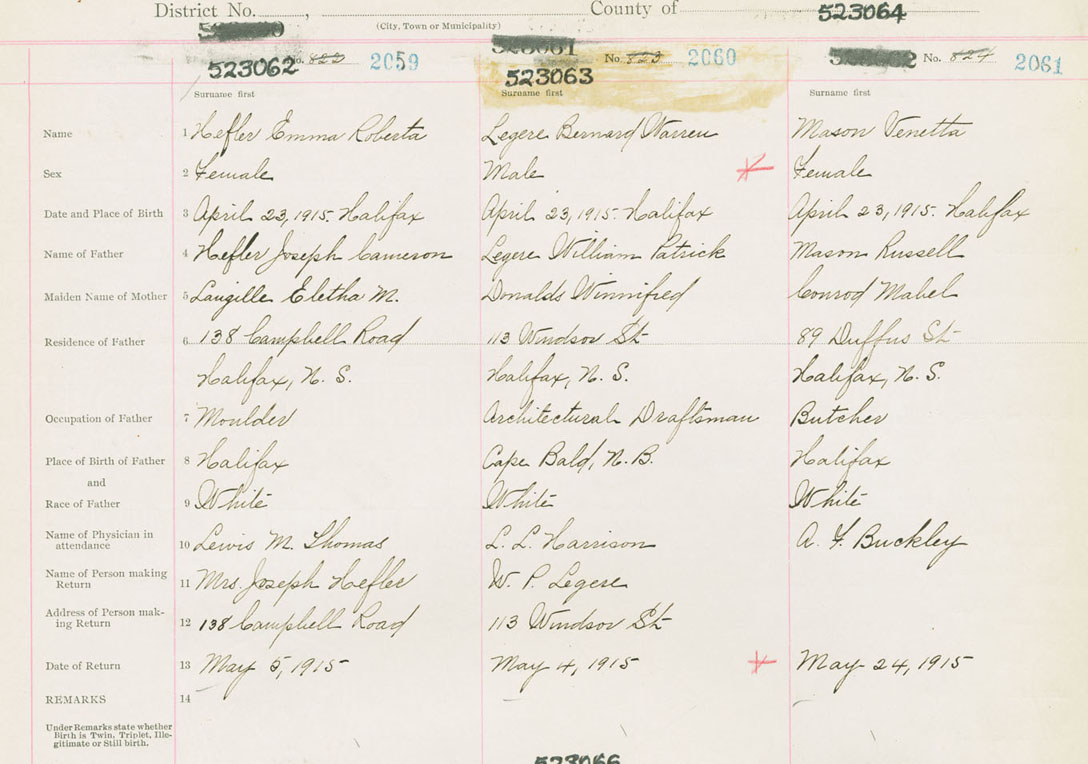 District No. , County of
(City, Town or Municipality)
523062 No. 822 2059 523063 No. 823 2060 523064 No. 824 2061
Surname first Surname first Surname first
Name 1 Hefler Emma Roberta Legere Bernard Warren Mason Venetta
Sex 2 Female Male Female
Date and Place of Birth 3 April 23, 1915. Halifax April 23, 1915. Halifax April 23, 1915. Halifax
Name of Father 4 Hefler Joseph Cameron Legere William Patrick Mason Russell
Maiden Name of Mother 5 Langille Eletha M. Donalds Winnifred Conrod Mabel
Residence of Father 6 138 Campbell Road 113 Windsor St 89 Duffus St
Halifax, N. S. Halifax, N. S. Halifax, N. S.
Occupation of Father 7 Moulder Architectural Draftsman Butcher
Place of Birth of Father 8 Halifax Cape Bald, N. B. Halifax
and
Race of Father 9 White White White
Name of Physician in attendance 10 Lewis M. Thomas L. L. Harrison A. F. Buckley
Name of Person making Return 11 Mrs Joseph Hefler W. P. Legere
Address of Person mak-ing Return 12 138 Campbell Road 113 Windsor St
Date of Return 13 May 5, 1915 May 4, 1915 May 24, 1915
REMARKS 14
Under Remarks state whether
Birth is Twin, Triplet, Ille-
gitimate or Still birth.
523066